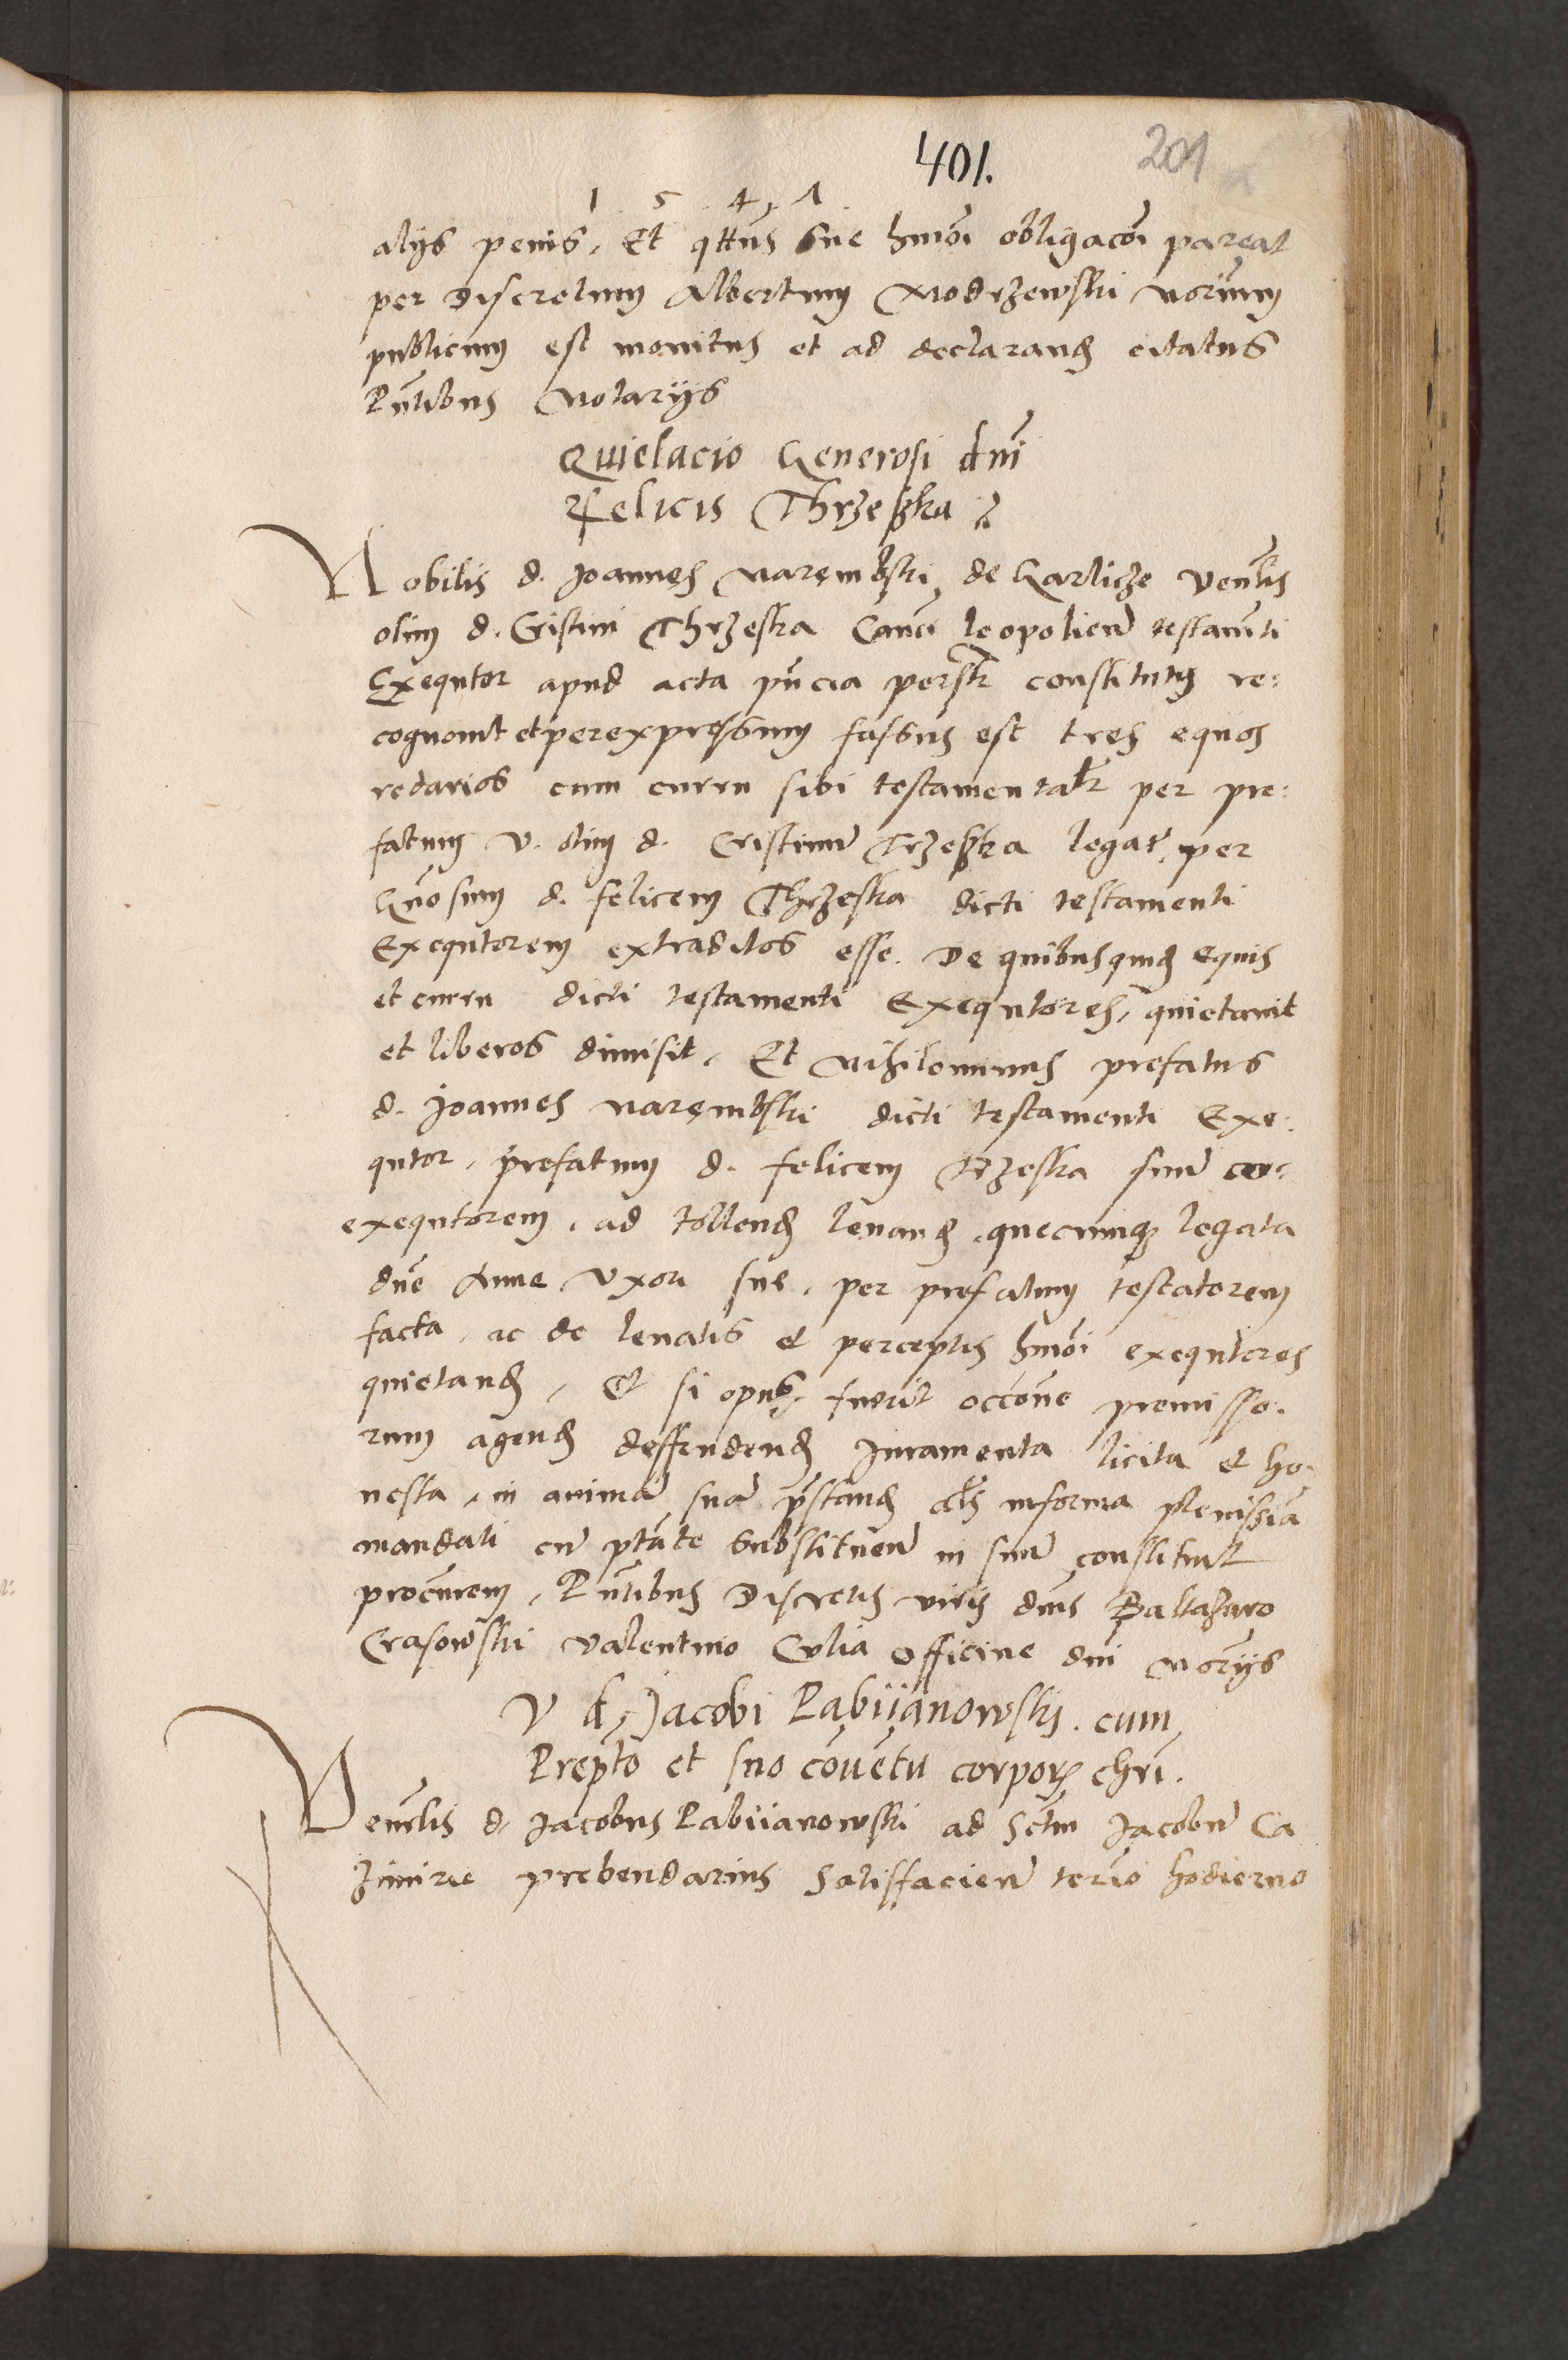 401.
201
1 5 4 1
alijs penis, Et qttus Sue hmoi obligacoi pareat
per Discretum Albertum Modrzewski Norium
publicum est monitus et ad declarand citatus
Pntibus Notarijs
Quietacio Generosi dni
Felicis Thrzeska
Nobilis d. Joannes Narembski de Garlicze Venlis
olim d. Cristini Thrzeska Canci leopolien testamti
Exequtor apud acta pncia persolr constitutus re:
cognovit et per expressum fassus est tres equos
redarios cum curru sibi testamentalr per pre:
fatum V. olim d. Cristinu Trzeska legat, per
Gnosum d. felicem Thrzeska dicti testamenti
Exequtorem extraditos esse. De quibusquid equis
et curru dicti testamenti Exequtores, quietavit
et liberos dimisit, Et Nihilominus prefatus
d. Joannes Narembski dicti testamenti Exe:
qutor, prefatum d. felicem Trzeska suu
exequtorem, ad tollend levand, quecumq legata
dne Anne Uxori sue, per prefatum testatorem
facta, ac de levatis et perceptis hmoi exequtores
quietand, Et si opus fuerit occone premisso.
rum agend deffendend Juramenta licita et ho.
nesta, in anima sua pstand als in forma plenissia
mandati cu ptate substituen in suu constituit
procurem, Pntibus Discretis viris dnis Baltazaro
Crasowski Valentino Gulia Officine dni Norijs
V d, Jacobi Pabijanowskj. cum
Prepto et suo covetu corporis chri.
Venrlis d. Jacobus Pabiianowski ad Sctm Jacobu Ca
zimirie prebendarius Satisfacien terio hodierno